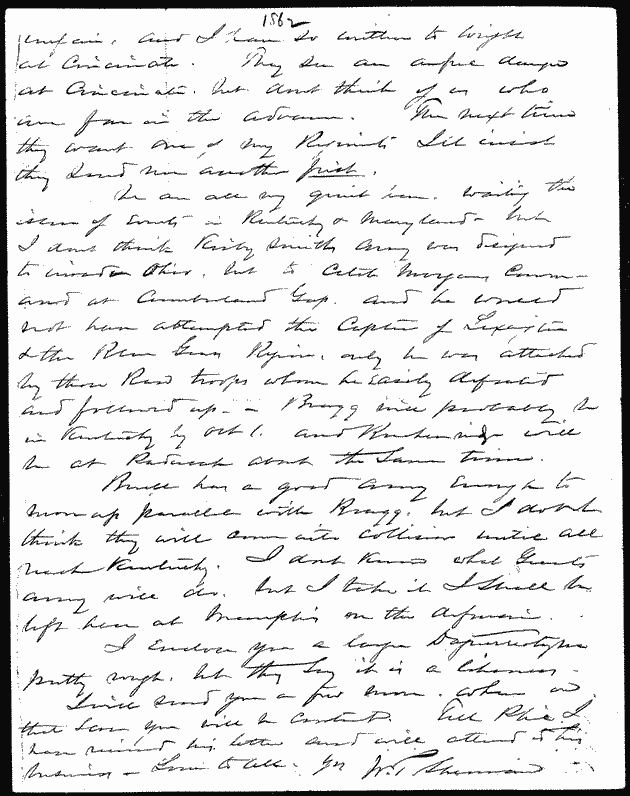 1862
unfair, and I have so written to Wright
at Cincinnati. They see an danger
at Cincinnati, but dont think of us who
are far in the advance. The next time
they want one of my Regiments I'll insist
they send me another first.
We are all very quiet here, waiting the
issue of Events in Kentucky & Maryland - but
I dont think Kirby Smiths Army was designed
to invade Ohio, but to Catch Morgans Comm-
and at Cumberland Gap. and he would
not have attempted the Capture of Lexington
& the Blue Grass Region, only he was attacked
by those Raw troops whom he Easily defeated
and followed up - Bragg will probably be
in Kentucky by Oct 1. and will
be at Paducah about the Same time.
Buell has a good army Enough to
move up parallel with Bragg, but I dont
think they will come into collision until all
reach Kentucky. I dont know what Grants
army will do. but I take it I Shall be
left here at Memphis on the defensive.
I Enclose you a large Daguerreotype
pretty rough, but they Say it is a likeness -
I will send you a few more.
you will be content. Tell I
have received his letter and will attend to his
business - Love to all. Yrs W.T. Sherman